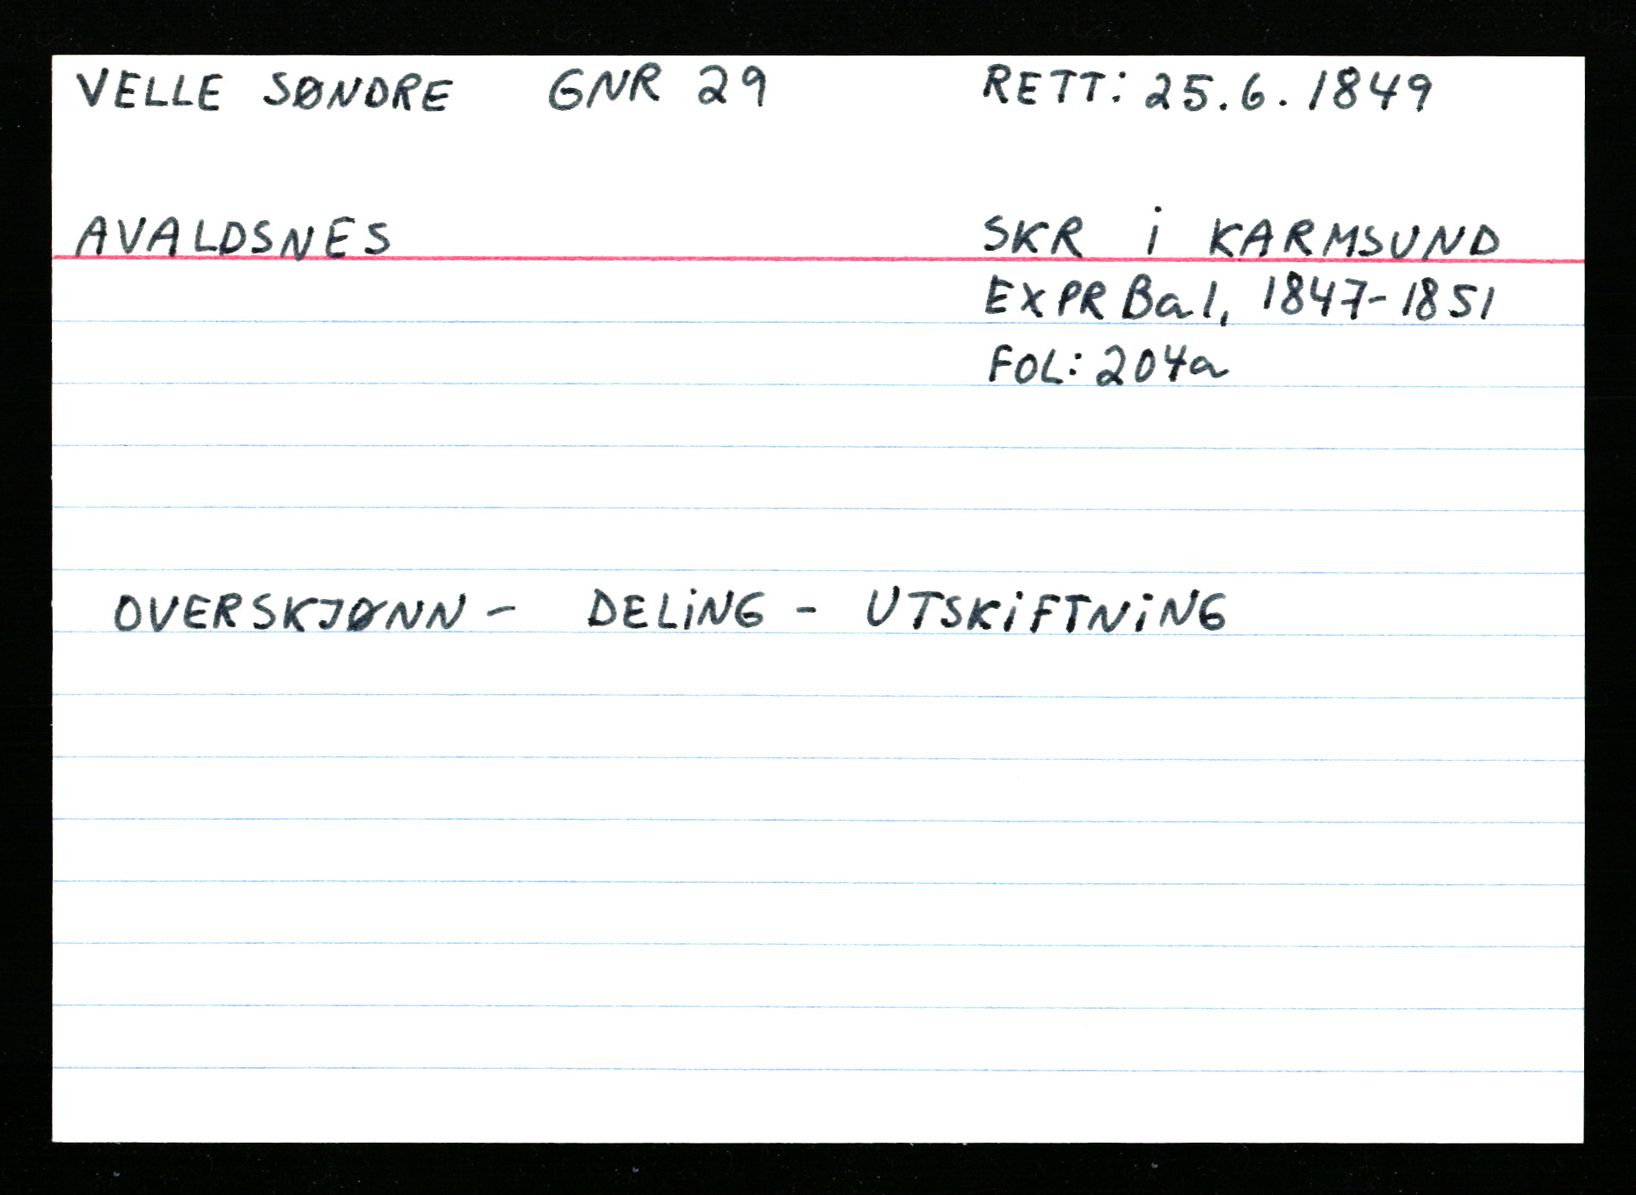 VELLE SØNDRE GNR 29 RETT: 25.6.1849
AVALDSNES SKR i KARMSUND
EXPR Ba1, 1847-1851
FOL: 204a
OVERSKJØNN - DELiNG - UTSKiFTNiNG